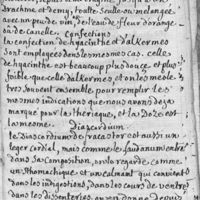 drachme, et demy, toute seulle ou melangée
avec un peu de vin, de l'eau de fleur d'orange
ou de canelle. Confections
la confection de hyacinthe et d'alkermes
sont employées dans les mesmes cas. celle
de hyacinthe est beaucoup plus douce et plus
foible que celle d'alkermes et on les mesle
tres souvent ensemble pour remplir les
mesmes indications que nous avons deja
marqué pour la theriaque, et la doze est
la mesme.
Diascordum
le Diascordum de racastor est aussi un
leger cordial, mais comme le laudanum entre
dans sa composition, on le regarde comme
un sthomachique et un calmant qui convient
dans les indigestions, dans les cours de ventre
dans les dissenteries, on en donne depuis